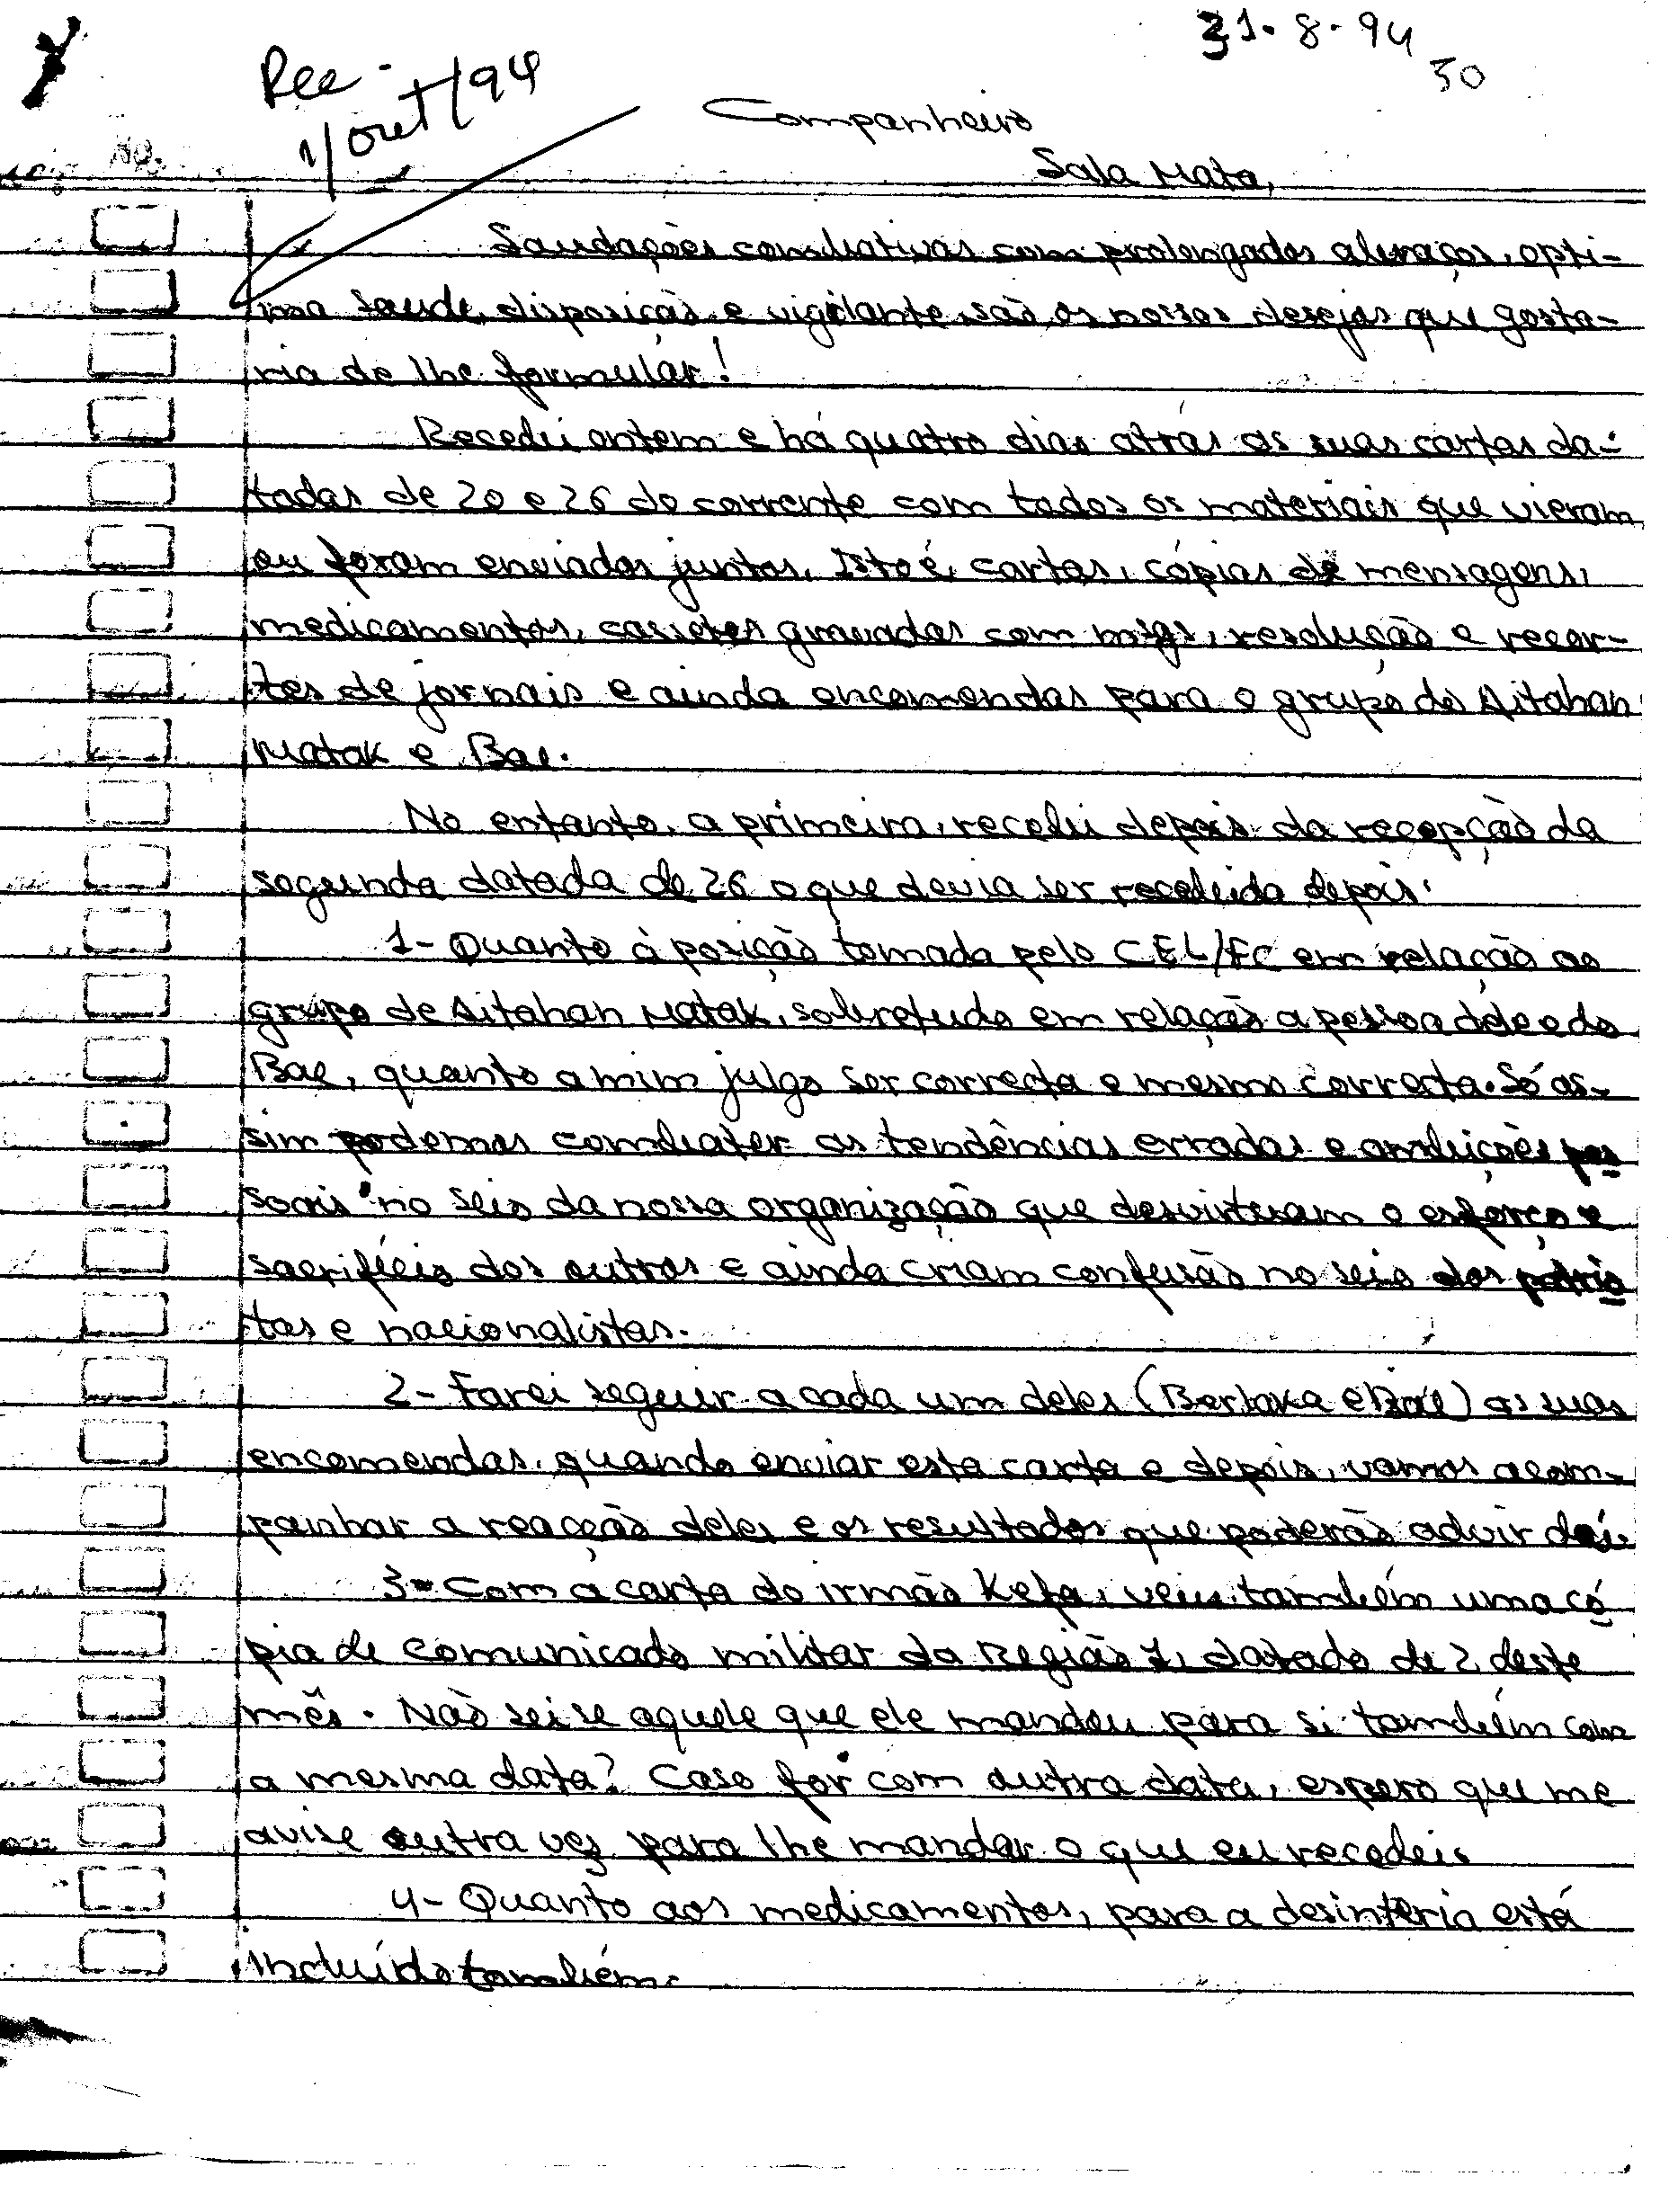 31.8.94
30
Rec.
1/out/94
Companheiro
Sala Mata,
Saudações combativas com prolongados abraços, opti-
ma saude, disposição e vigilante, são os nossos desejos que gosta-
ria de lhe formular!
Recebi ontem e há quatro dias atrás as suas cartas da-
tadas de 20 e 26 do corrente com todos os materiais que vieram
ou foram enviados juntos. Isto é, cartas, cópias de mensagens,
medicamentos, cassetes gravadas com msgs, resolução e recor-
tes de jornais e ainda encomendas para o grupo do Aitahan
Matak e Bae.
No entanto, a primeira, recebi depois da recepção da
segunda datada de 26 o que devia ser recebida depois.
1- Quanto à posição tomada pelo CEL/FC em relação ao
grupo de Aitahan Matak, sobretudo em relação a pessoa dele e do
Bae, quanto a mim julgo ser correcta e mesmo correcta. Só as-
sim podemos combater as tendências erradas e ambições pes
soais no seio da nossa organização que desvirtuam o esforço e
sacrifício dos outros e ainda criam confusão no seio dos patrio
tas e nacionalistas.
2- Farei seguir a cada um deles (Berlaka e Bae) as suas
encomendas, quando enviar esta carta e depois, vamos acom-
panhar a reacção deles e os resultados que poderão advir daí.
3- Com a carta do irmão Kefa, veiu também uma có
pia de comunicado militar da Região 1, datado de 2 deste
mês. Não sei se aquele que ele mandou para si também com
a mesma data? Caso for com outra data, espero que me
avise outra vez para lhe mandar o que eu recebeis
4- Quanto aos medicamentos, para a desinteria está
incluído também.